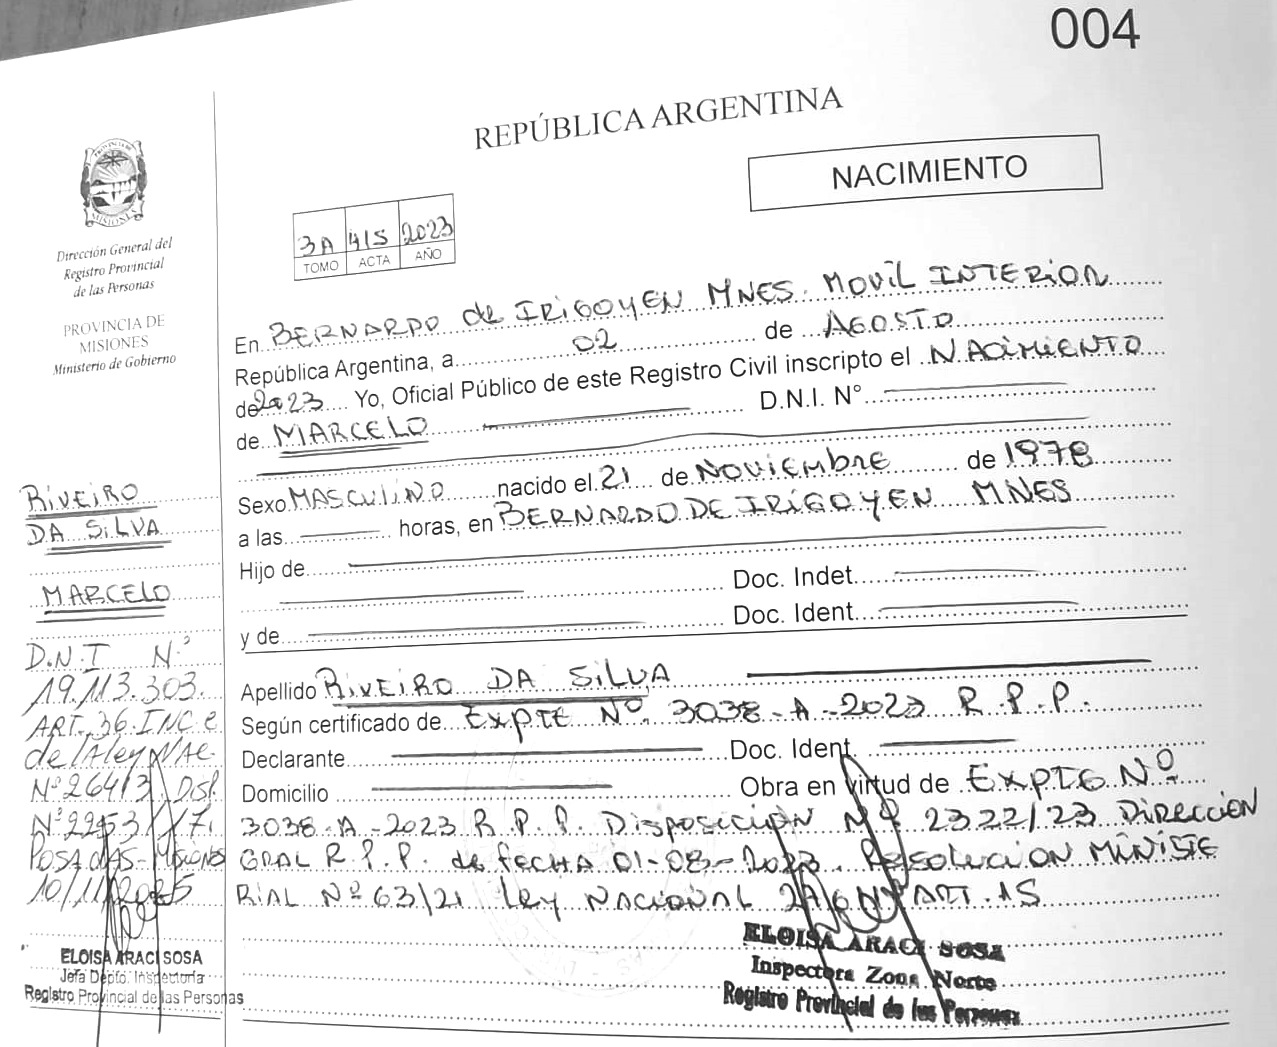 004
REPÚBLICA ARGENTINA
NACIMIENTO
PROVINCIA DE
MISIONES
Dirección General del
Registro Provincial
de las Personas
PROVINCIA DE
MISIONES
Ministerio de Gobierno
3A 415 2023
TOMO ACTA AÑO
En BERNARDO de IRIGOYEN MNES. MOVIL INTERIOR
República Argentina, a 02 de AGOSTO
de 2023 Yo, Oficial Público de este Registro Civil inscripto el NACIMIENTO
de MARCELO D.N.I. N°
Sexo MASCULINO nacido el 21 de NOVIEMBRE de 1978
a las horas, en BERNARDO DE IRIGOYEN MNES
Hijo de
Doc. Indet.
y de Doc. Ident.
Apellido RIVEIRO DA SILVA
Según certificado de EXPTE Nº 3038-A-2023 R.P.P.
Declarante Doc. Ident.
Domicilio Obra en virtud de EXPTE Nº
3038-A-2023 R.P.P. DISPOSICIÓN Nº 2322/23 DIRECCION
GRAL R.P.P. de FECHA 01-08-2023. RESOLUCION MINISTE
RIAL Nº 63/21 LEY NACIONAL ART. 15
ELOISA ARACI SOSA
Inspectora Zona Norte
Registro Provincial de las Personas
RIVEIRO
DA SILVA
MARCELO
D.N.I Nº
19.113.303.
ART. 36. INC c
de la Ley NAC.
Nº 26413 DSP.
Nº 2253
POSADAS-MISIONES
10/11/2025
ELOISA ARACI SOSA
Jefa Depto. Inspectoría
Registro Provincial de las Personas